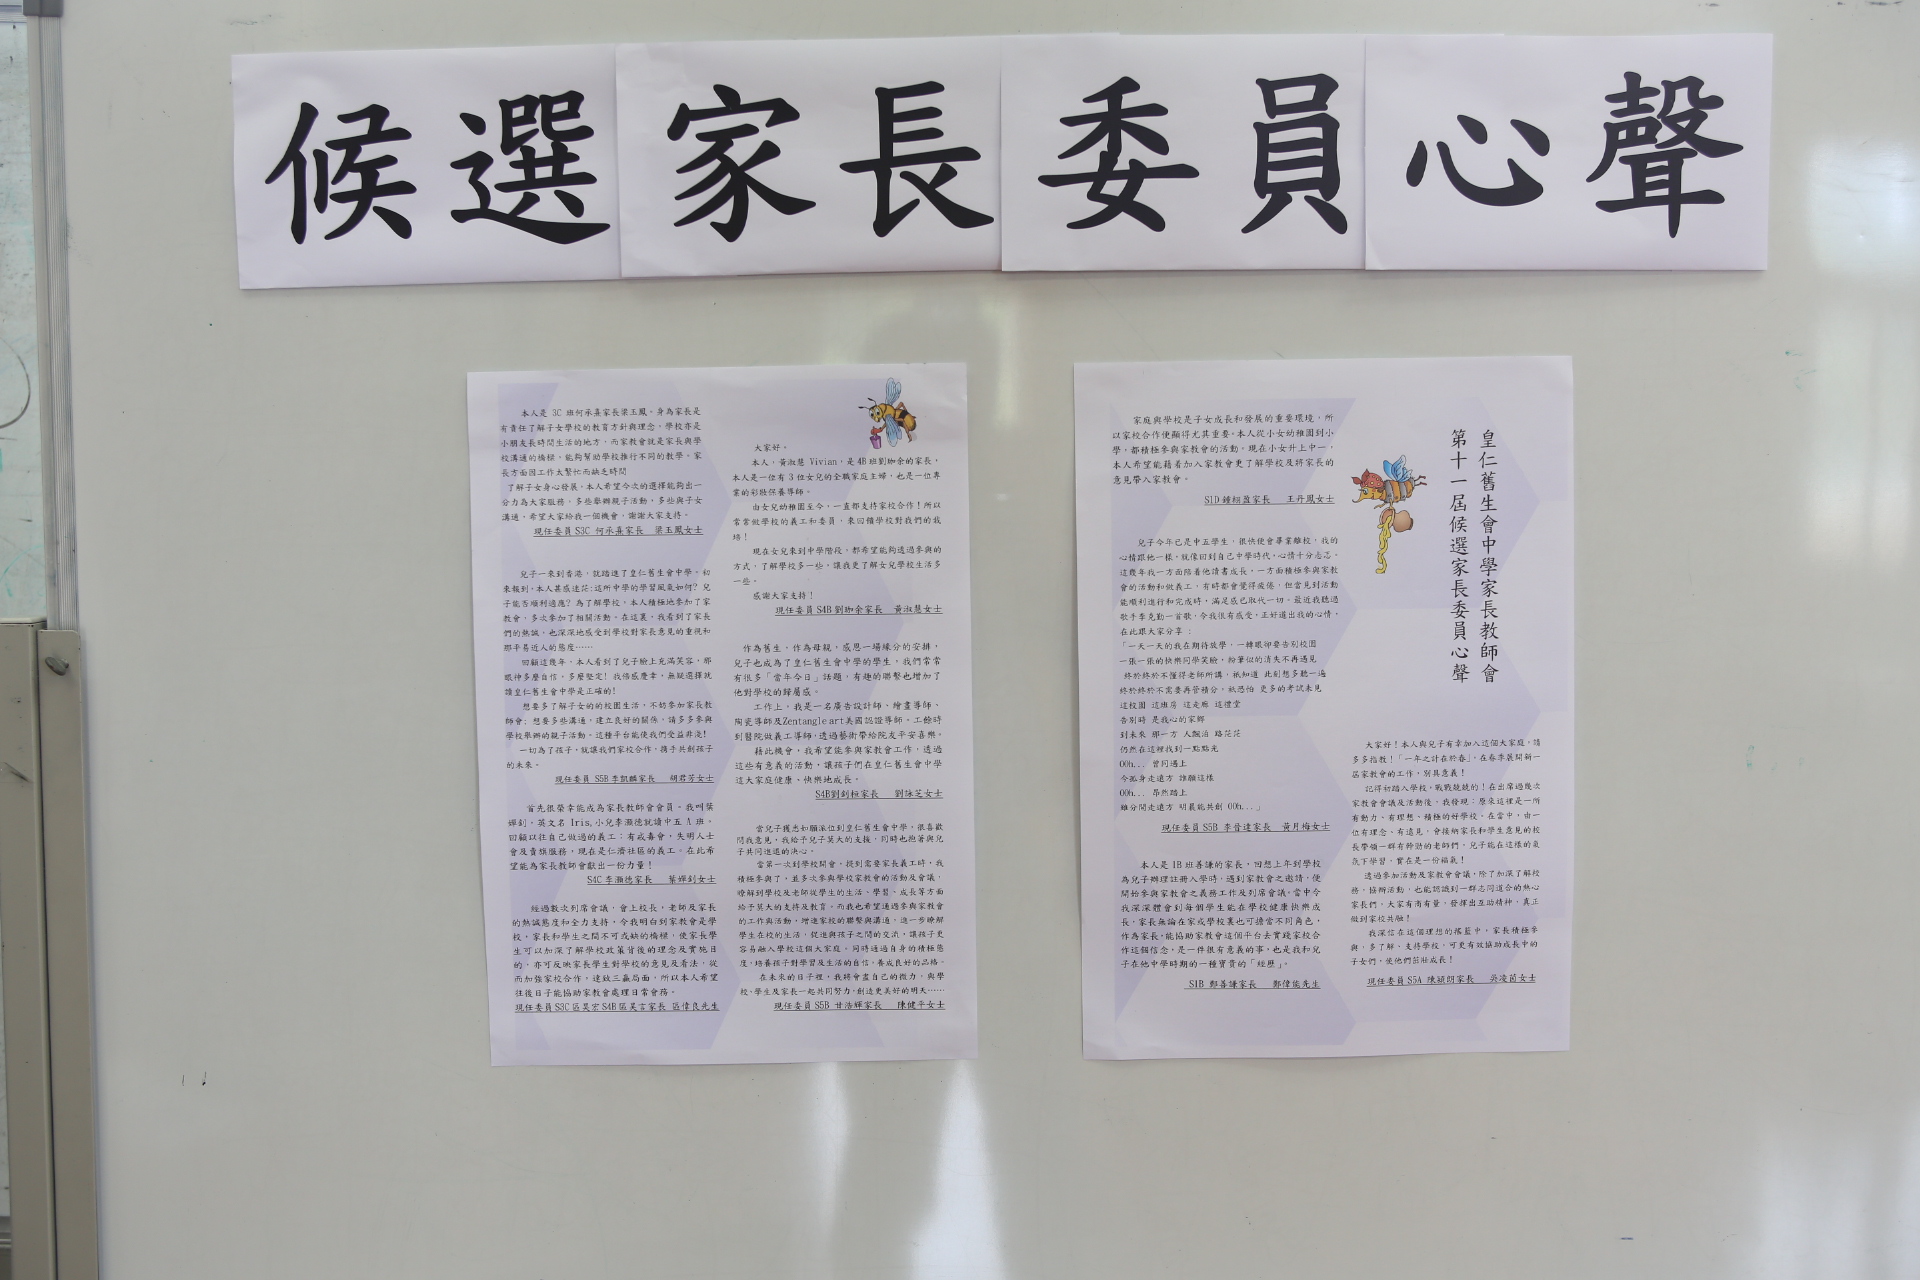 候選家長委員心聲
本人是 3C 班何承熹家長梁玉鳳。身為家長是
有責任了解子女學校的教育方針與理念。學校亦是
小朋友長時間生活的地方，而家教會就是家長與學
校溝通的橋樑，能夠幫助學校推行不同的教學。家
長方面因工作太繁忙而缺乏時間
了解子女身心發展。本人希望今次的選擇能夠出一
分力為大家服務，多些舉辦親子活動，多些與子女
溝通。希望大家給我一個機會，謝謝大家支持。
現任委員 S3C 何承熹家長 梁玉鳳女士
兒子一來到香港，就踏進了皇仁舊生會中學。初
來報到，本人甚感迷茫：這所中學的學習風氣如何？兒
子能否順利適應？為了解學校，本人積極地參加了家
教會，多次參加了相關活動。在這裏，我看到了家長
們的熱誠，也深深地感受到學校對家長意見的重視和
那平易近人的態度……
回顧這幾年，本人看到了兒子臉上充滿笑容，那
眼神多麼自信，多麼堅定！我倍感慶幸，無疑選擇就
讀皇仁舊生會中學是正確的！
想要多了解子女的的校園生活，不妨參加家長教
師會；想要多些溝通，建立良好的關係，請多多參與
學校舉辦的親子活動。這種平台能使我們受益非淺！
一切為了孩子，就讓我們家校合作，攜手共創孩子
的未來。
現任委員 S5B 李凱麟家長 胡君芳女士
首先很榮幸能成為家長教師會會員。我叫葉
嬋釗，英文名 Iris,小兒李灝德就讀中五 A 班。
回顧以往自己做過的義工：有戒毒會，失明人士
會及賣旗服務，現在是仁濟社區的義工。在此希
望能為家長教師會獻出一份力量！
S4C 李灝德家長 葉嬋釗女士
經過數次列席會議，會上校長，老師及家長
的熱誠態度和全力支持，令我明白到家教會是學
校，家長和學生之間不可或缺的橋樑，使家長學
生可以加深了解學校政策背後的理念及實施目
的，亦可反映家長學生對學校的意見及看法，從
而加強家校合作，達致三贏局面，所以本人希望
往後日子能協助家教會處理日常會務。
現任委員 S3C 區昊宏 S4B 區昊言家長 區偉良先生
大家好。
本人，黃淑慧 Vivian，是 4B 班劉珈余的家長，
本人是一位有 3 位女兒的全職家庭主婦，也是一位專
業的彩妝保養導師。
由女兒幼稚園至今，一直都支持家校合作！所以
常常做學校的義工和委員，來回饋學校對我們的栽
培！
現在女兒來到中學階段，都希望能夠透過參與的
方式，了解學校多一些，讓我更了解女兒學校生活多
一些。
感謝大家支持！
現任委員 S4B 劉珈余家長 黃淑慧女士
作為舊生，作為母親，感恩一場緣分的安排，
兒子也成為了皇仁舊生會中學的學生，我們常常
有很多「當年今日」話題，有趣的聯繫也增加了
他對學校的歸屬感。
工作上，我是一名廣告設計師、繪畫導師、
陶瓷導師及Zentangle art美國認證導師。工餘時
到醫院做義工導師，透過藝術帶給院友平安喜樂。
藉此機會，我希望能參與家教會工作，透過
這些有意義的活動，讓孩子們在皇仁舊生會中學
這大家庭健康、快樂地成長。
S4B劉釗桓家長 劉詠芝女士
當兒子獲悉如願派位到皇仁舊生會中學，很喜歡
問我意見，我給予兒子莫大的支援，同時也抱著與兒
子共同進退的決心。
當第一次到學校開會，提到需要家長義工時，我
積極參與了，並多次參與學校家教會的活動及會議，
瞭解到學校及老師從學生的生活、學習、成長等方面
給予莫大的支持及教育。而我也希望通過參與家教會
的工作與活動，增進家校的聯繫與溝通，進一步瞭解
學生在校的生活，促進與孩子之間的交流，讓孩子更
容易融入學校這個大家庭。同時通過自身的積極態
度，培養孩子對學習及生活的自信，養成良好的品格。
在未來的日子裡，我將會盡自己的微力，與學
校、學生及家長一起共同努力，創造更美好的明天……
現任委員 S5B 甘浩輝家長 陳健平女士
皇仁舊生會中學家長教師會
第十一屆候選家長委員心聲
家庭與學校是子女成長和發展的重要環境，所
以家校合作便顯得尤其重要。本人從小女幼稚園到小
學，都積極參與家教會的活動。現在小女升上中一，
本人希望能藉着加入家教會更了解學校及將家長的
意見帶入家教會。
S1D 鍾栩盈家長 王丹鳳女士
兒子今年已是中五學生，很快便會畢業離校，我的
心情跟他一樣，就像回到自己中學時代，心情十分忐忑。
這幾年我一方面陪著他讀書成長，一方面積極參與家教
會的活動和做義工，有時都會覺得疲倦，但當見到活動
能順利進行和完成時，滿足感已取代一切。最近我聽過
歌手李克勤一首歌，令我很有感受，正好道出我的心情，
在此跟大家分享：
「一天一天的我在期待放學，一轉眼卻要告別校園
一張一張的快樂同學笑臉，粉筆似的消失不再遇見
終於終於不懂得老師所講，祇知道 此刻想多聽一遍
終於終於不需要再管積分，祇恐怕 更多的考試未見
這校園 這班房 這走廊 這禮堂
告別時 是我心的家鄉
到未來 那一方 人飄泊 路茫茫
仍然在這裡找到一點點光
OOh... 曾同遇上
今孤身走遠方 誰願這樣
OOh... 昂然踏上
雖分開走遠方 明晨能共創 OOh...」
現任委員 S5B 李晉達家長 黃月梅女士
本人是 1B 班善謙的家長，回想上年到學校
為兒子辦理註冊入學時，遇到家教會之邀請，便
開始參與家教會之義務工作及列席會議。當中令
我深深體會到每個學生能在學校健康快樂成
長，家長無論在家或學校裏也可擔當不同角色，
作為家長，能協助家教會這個平台去實踐家校合
作這個信念，是一件很有意義的事，也是我和兒
子在他中學時期的一種寶貴的「經歷」。
S1B 鄭善謙家長 鄭偉能先生
大家好！本人與兒子有幸加入這個大家庭，請
多多指教！「一年之計在於春」，在春季展開新一
屆家教會的工作，別具意義！
記得初踏入學校，戰戰兢兢的！在出席過幾次
家教會會議及活動後，我發現：原來這裡是一所
有動力、有理想、積極的好學校，在當中，由一
位有理念、有遠見、會接納家長和學生意見的校
長帶領一群有幹勁的老師們，兒子能在這樣的氣
氛下學習，實在是一份福氣！
透過參加活動及家教會會議，除了加深了解校
務，協辦活動，也能認識到一群志同道合的熱心
家長們，大家有商有量，發揮出互助精神，真正
做到家校共融！
我深信在這個理想的搖籃中，家長積極參
與，多了解、支持學校，可更有效協助成長中的
子女們，使他們茁壯成長！
現任委員 S5A 陳穎朗家長 吳凌茵女士